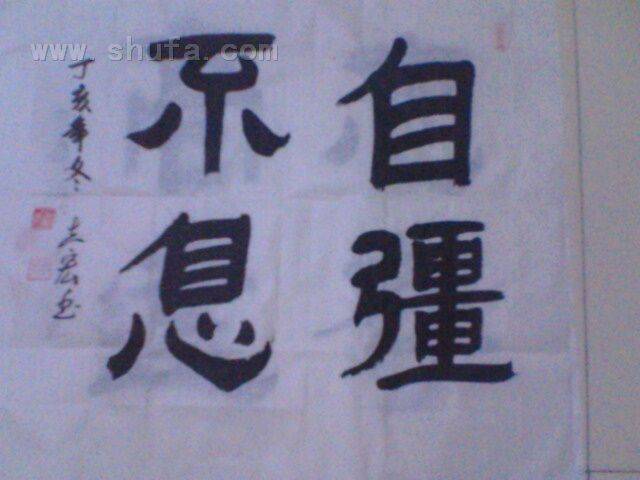 自彊
不息
丁亥年冬 志宏书
www.shufa.com